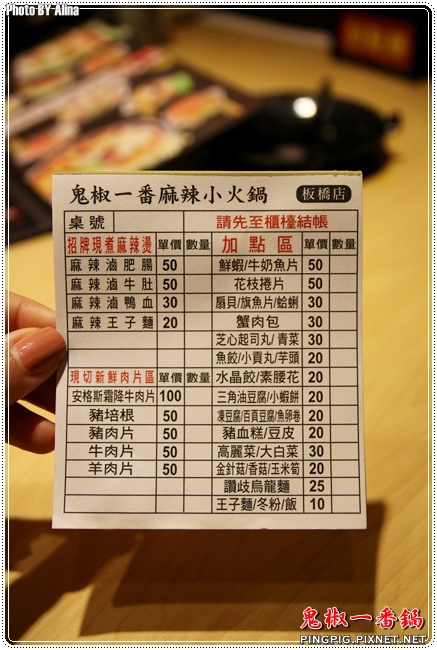 Photo BY Alina
鬼椒一番麻辣小火鍋 板橋店
桌號 請先至櫃檯結帳
招牌現煮麻辣燙 單價 數量 加點區 單價 數量
麻辣滷肥腸 50 鮮蝦/牛奶魚片 50
麻辣滷牛肚 50 花枝捲片 50
麻辣滷鴨血 30 扇貝/旗魚片/蛤蜊 30
麻辣王子麵 20 蟹肉包 30
芝心起司丸/青菜 30
魚餃/小貢丸/芋頭 20
現切新鮮肉片區 單價 數量 水晶餃/素腰花 20
安格斯霜降牛肉片 100 三角油豆腐/小蝦餅 20
豬培根 50 凍豆腐/百頁豆腐/魚卵卷 20
豬肉片 50 豬血糕/豆皮 20
牛肉片 50 高麗菜/大白菜 30
羊肉片 50 金針菇/香菇/玉米筍 20
讚岐烏龍麵 25
王子麵/冬粉/飯 10
鬼椒一番鍋
PINGPIG.PIXNET.NET